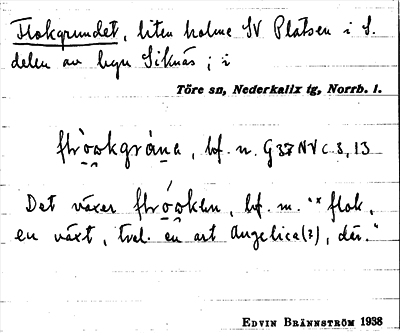 Flokgrundet, liten holme SV Platsen i S.
delen av byn Siknäs; i
Töre sn, Nederkalix tg, Norrb. l.
bf. n. G 37 NV c. 8, 13
Det växer bf. m. "* flok,
en växt, tvel. en art Angelica(?), där."
EDVIN BRÄNNSTRÖM 1938